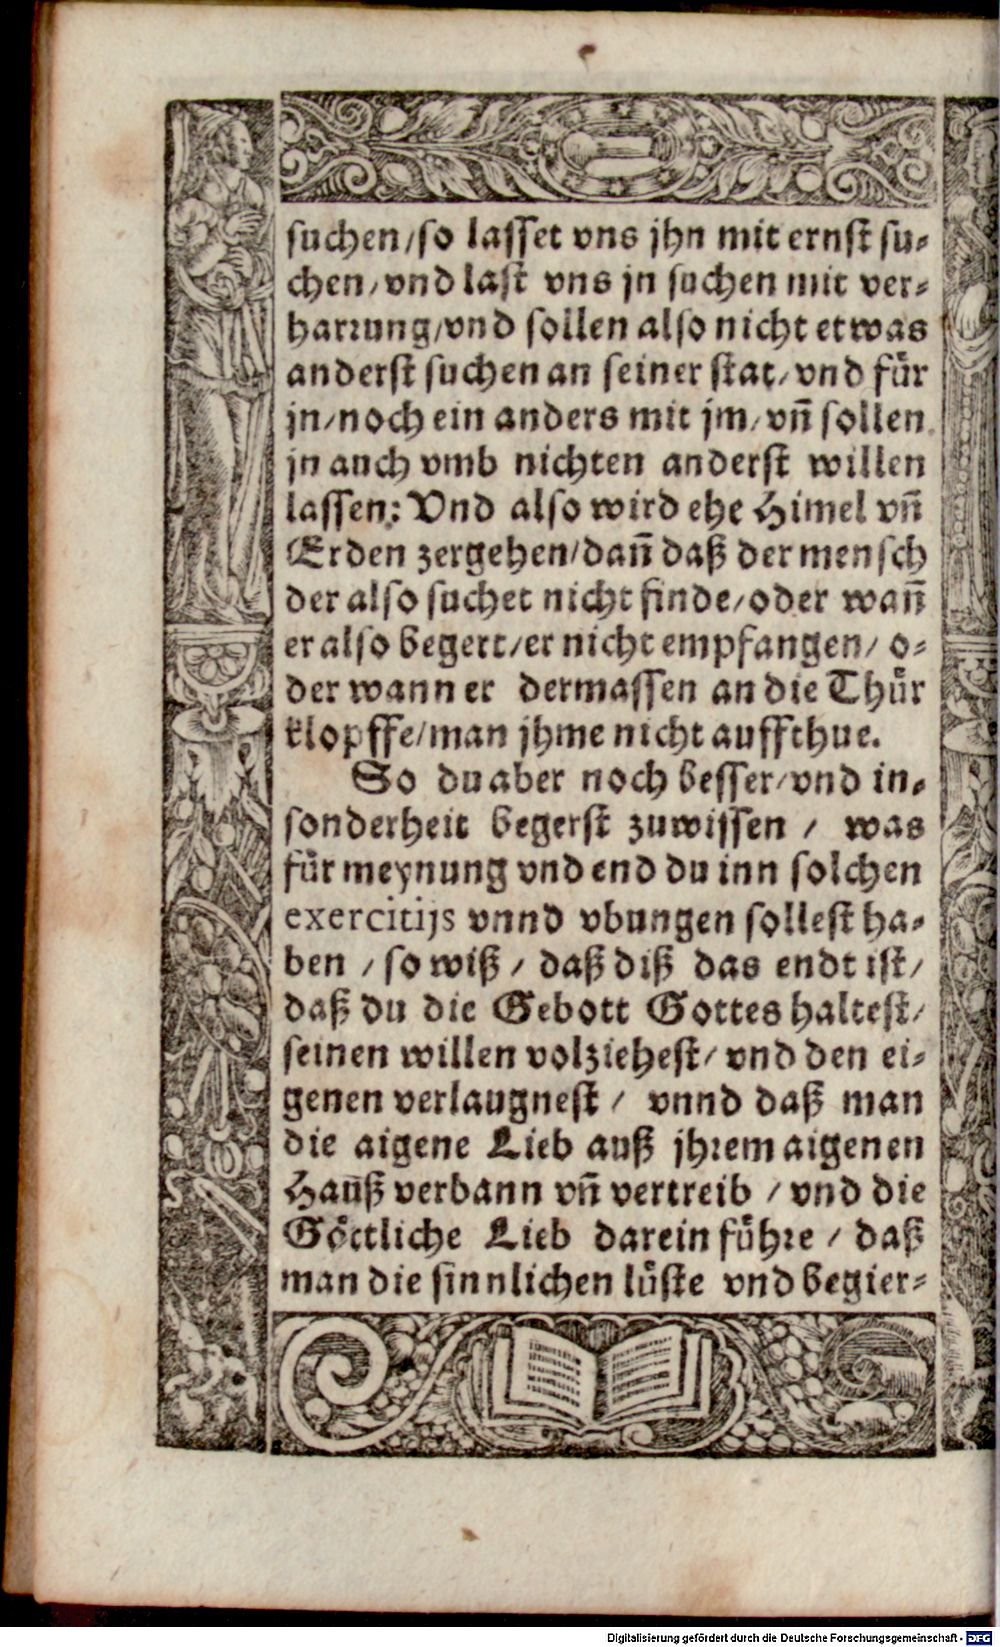 suchen/so lasset vns jhn mit ernst su⸗
chen/vnd last vns jn suchen mit ver⸗
harrung/vnd sollen also nicht etwas
anderst suchen an seiner stat/vnd fuͤr
jn/noch ein anders mit jm/vn̄ sollen
jn auch vmb nichten anderst willen
lassen: Vnd also wird ehe Himel vn̄
Erden zergehen/dan̄ daß der mensch
der also suchet nicht finde/oder wan̄
er also begert/er nicht empfangen/ o⸗
der wann er dermassen an die Thuͤr
klopffe/man jhme nicht auffthue.
So du aber noch besser/vnd in⸗
sonderheit begerst zuwissen / was
fuͤr meynung vnd end du inn solchen
exercitijs vnnd vbungen sollest ha⸗
ben / so wiß / daß diß das endt ist/
daß du die Gebott Gottes haltest/
seinen willen volziehest/ vnd den ei⸗
genen verlaugnest / vnnd daß man
die aigene Lieb auß jhrem aigenen
Hauß verbann vn̄ vertreib / vnd die
Goͤttliche Lieb darein fuͤhre / daß
man die sinnlichen luͤste vnd begier⸗
Digitalisierung gefördert durch die Deutsche Forschungsgemeinschaft - DFG